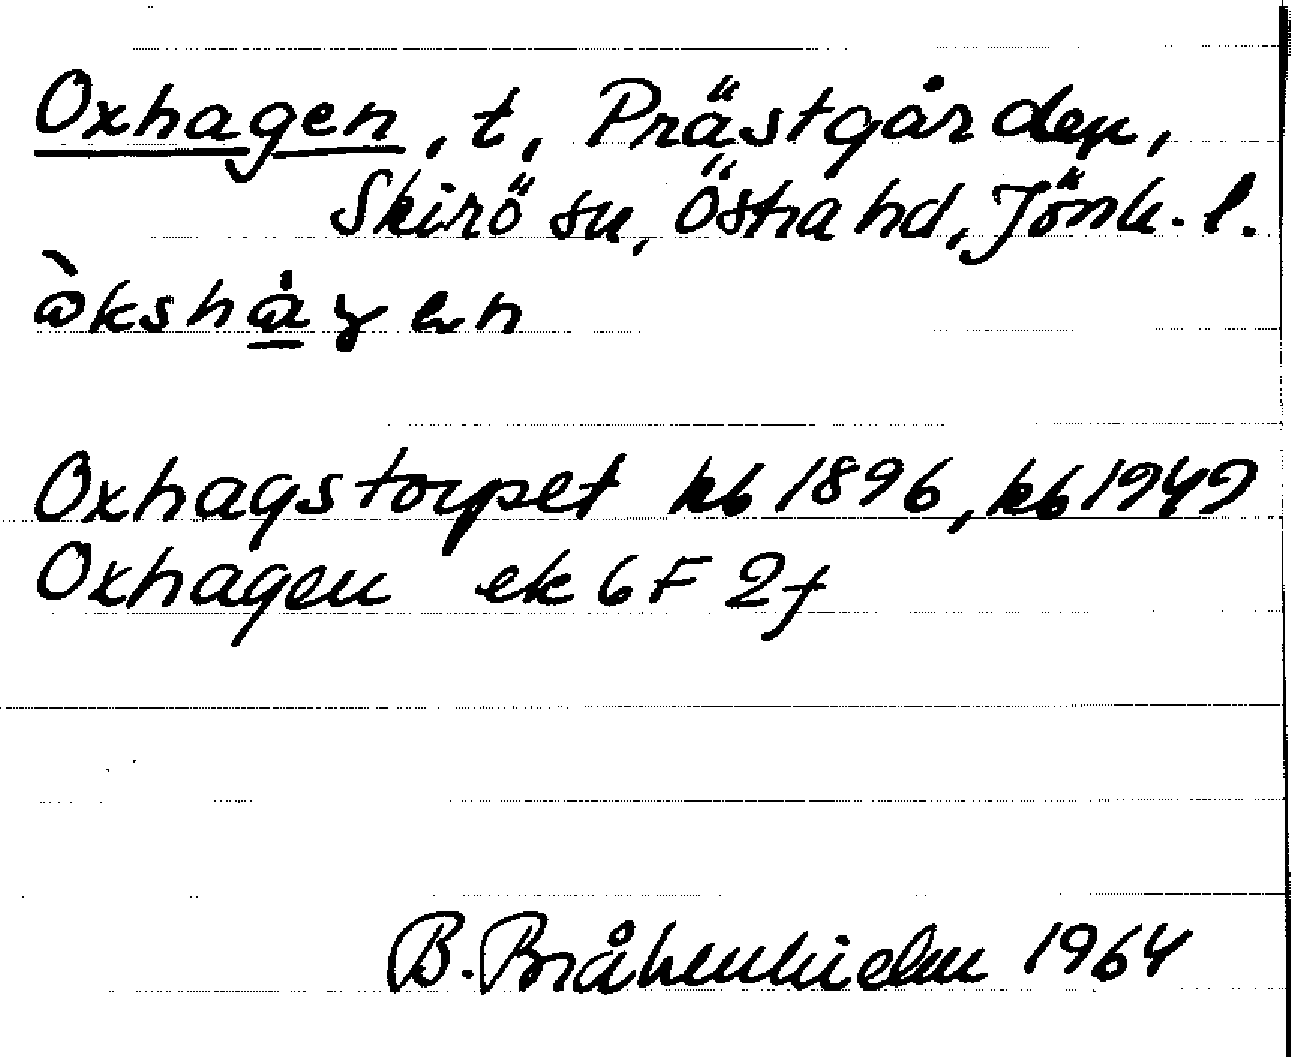 Oxhagen, t, Prästgården,
Skirö sn, Östra hd, Jönk. l.
òkshȧ̲gen
Oxhagstorpet kb 1896, kb 1949
Oxhagen ek 6F 2f
B. 1964